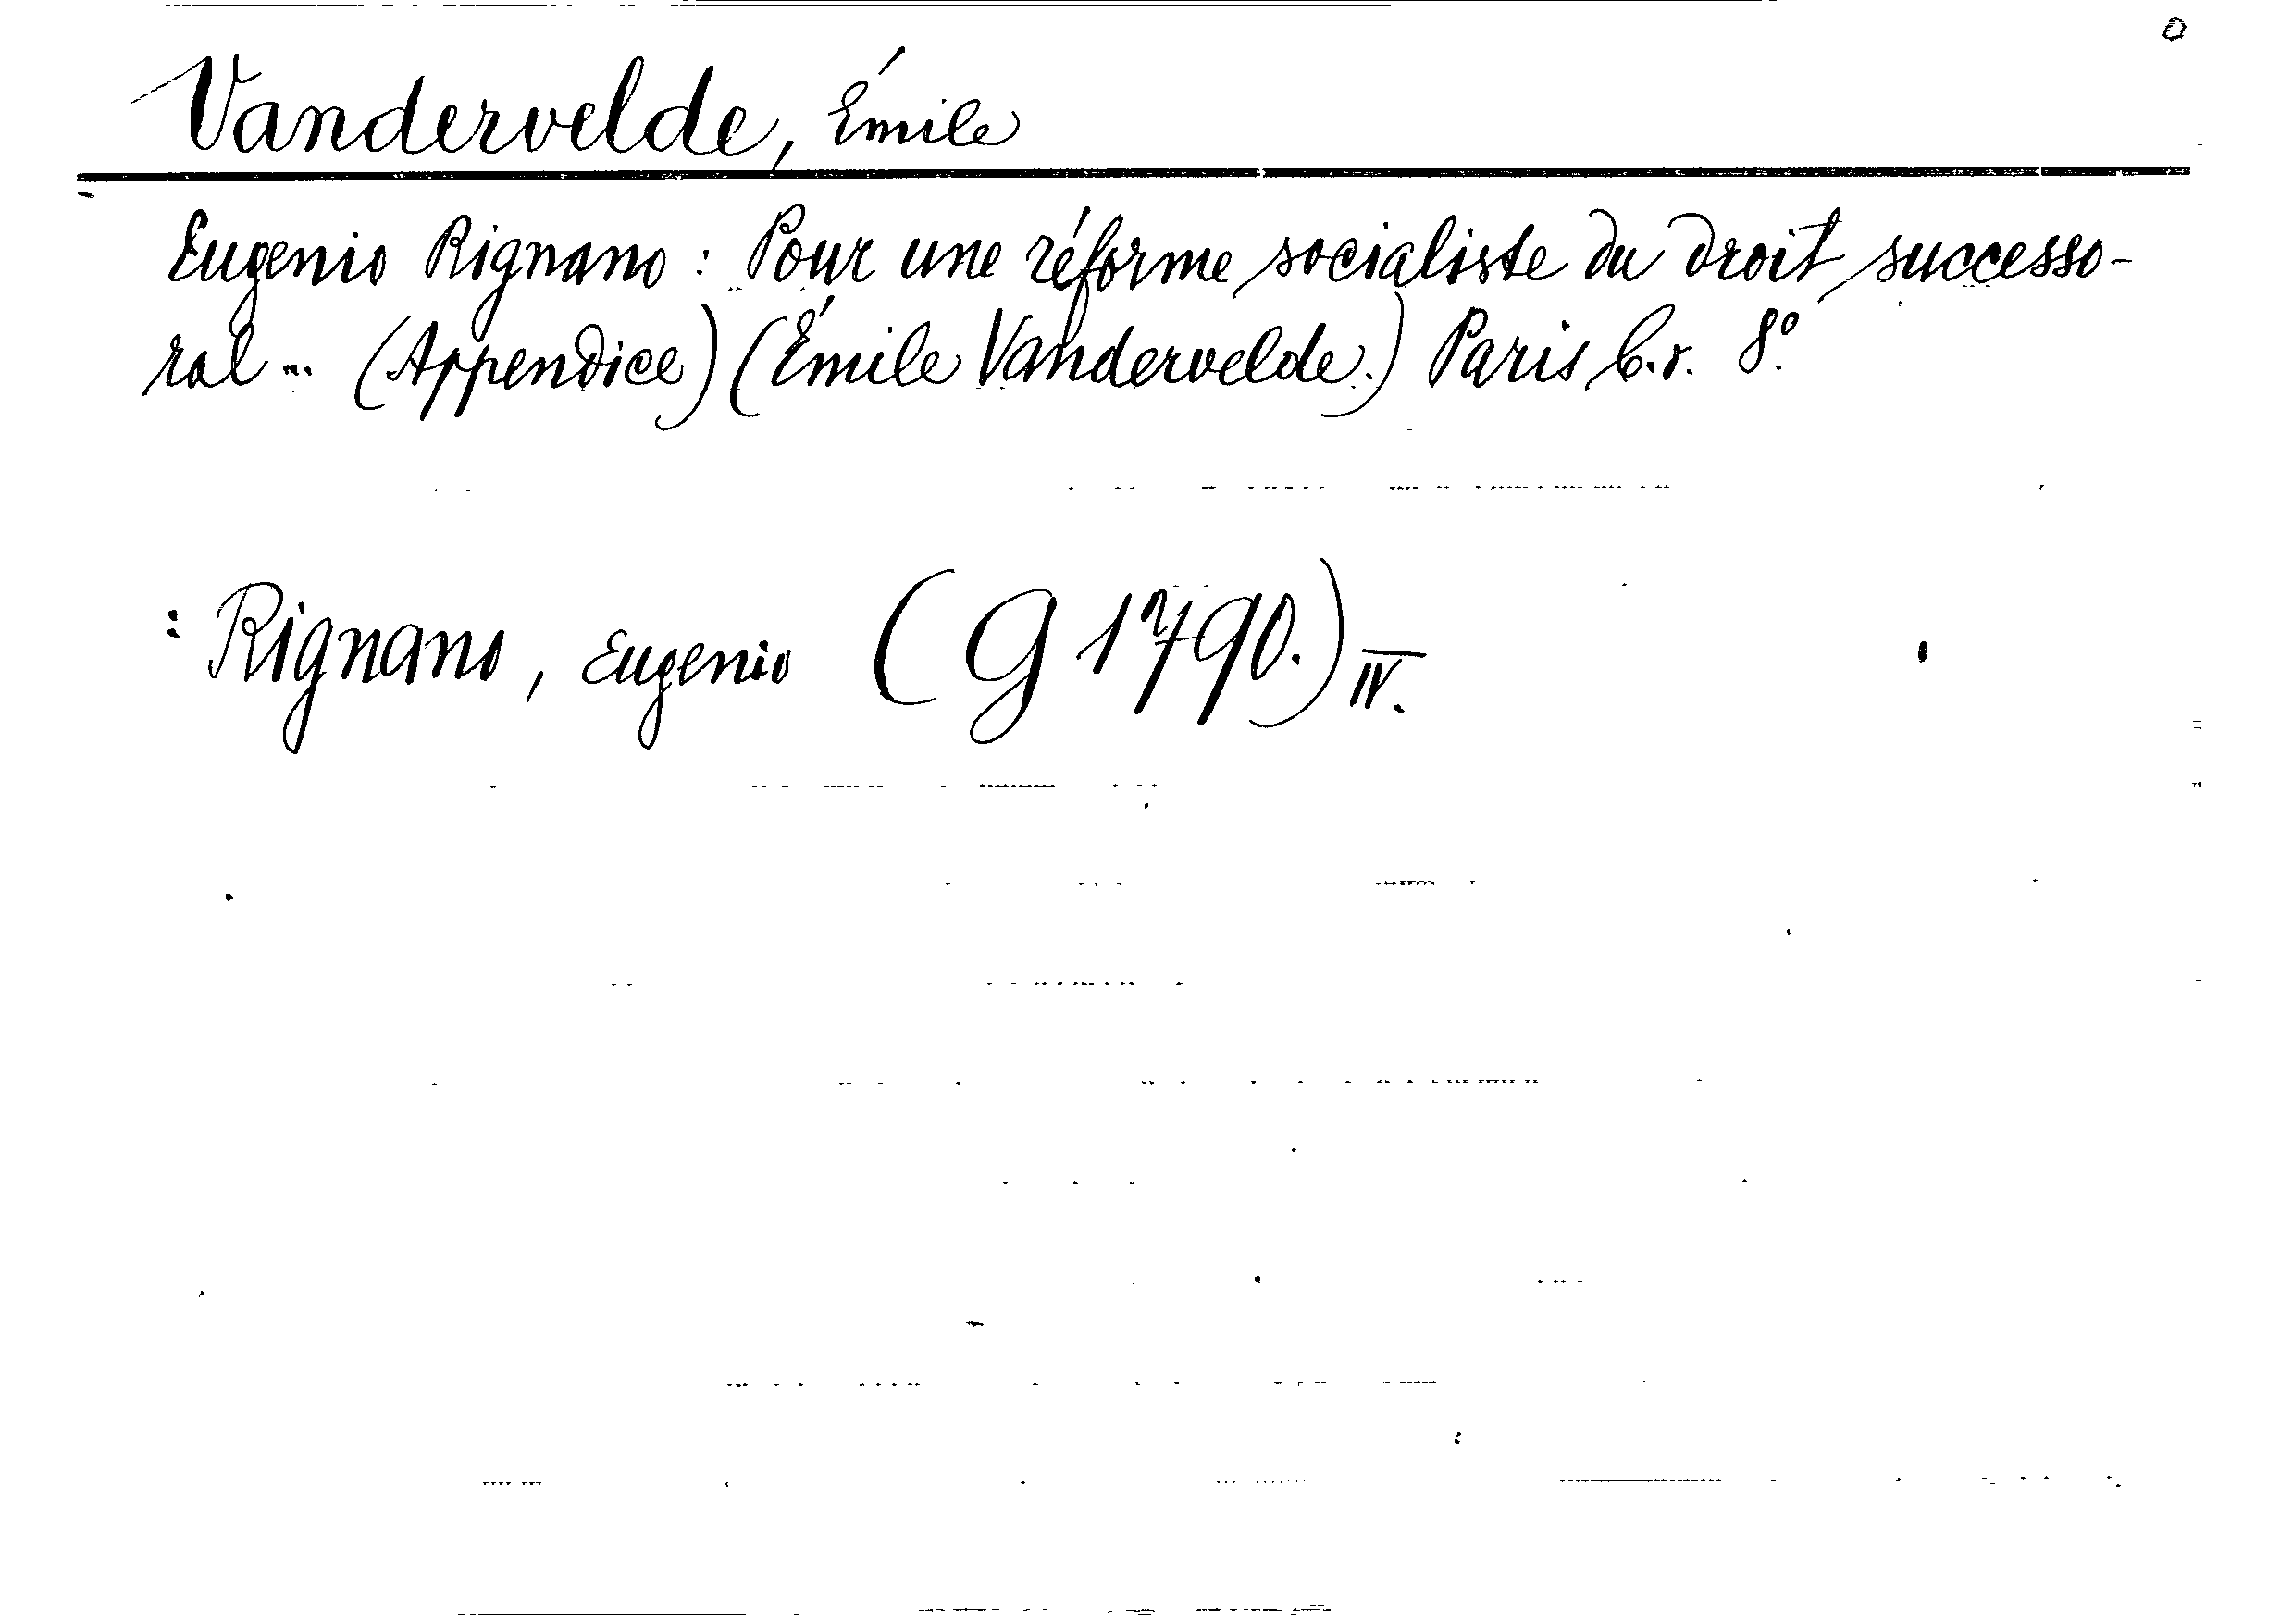 Vandervelde, Émile
Eugenio Rignano: Pour une réforme socialiste du droit successo-
ral... (Appendice) (Émile Vandervelde.) Paris b.r. 8°.
: Rignano, Eugenio (G 1790.) IV.